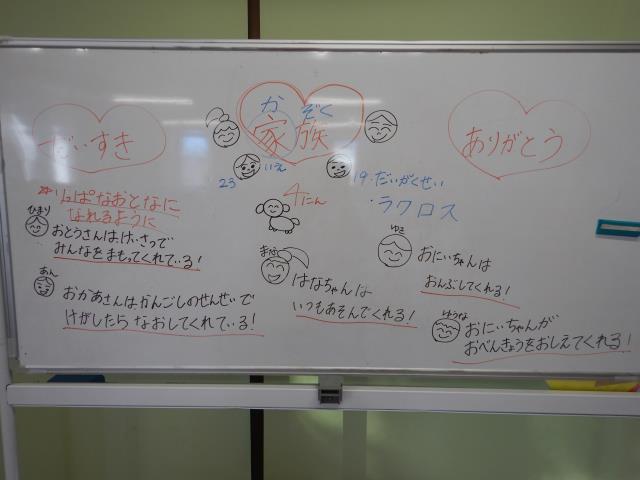 か ぞく
家族
いえ
だいすき
ありがとう
23
19・だいがくせい
・ラクロス
4にん
☆りっぱなおとなに
なれるように
ひまり
おとうさんはけいさつで
みんなをまもってくれている!
あん
おかあさんはかんごしのせんせいで
けがしたらなおしてくれている!
はなちゃんは
いつもあそんでくれる!
ゆさ
おにいちゃんは
おんぶしてくれる!
ゆうな
おにいちゃんが
おべんきょうをおしえてくれる!